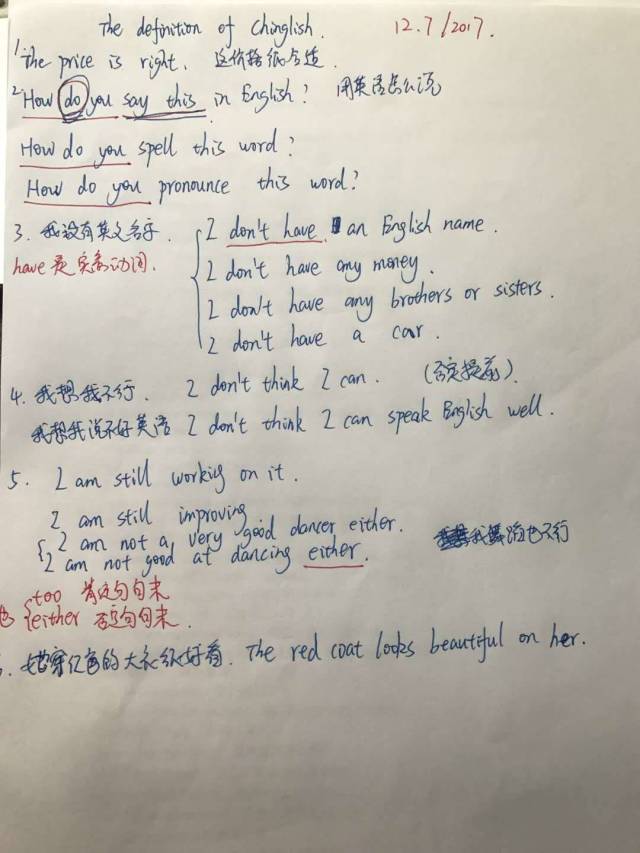 The definition of Chinglish. 12.7/2017.
1. The price is right. 这价格很合适.
2. How do you say this in English? 用英语怎么说
How do you spell this word?
How do you pronounce this word?
3. 我没有英文名字. I don't have an English name.
have是实意动词. I don't have any money.
I don't have any brothers or sisters.
I don't have a car.
4. 我想我不行. I don't think I can. (否定提前).
我想我说不好英语 I don't think I can speak English well.
5. I am still working on it.
I am still improving
I am not a very good dancer either. 我舞蹈也不行
I am not good at dancing either.
too 肯定句句末
也 either 否定句句末.
. 她穿红色的大衣很好看. The red coat looks beautiful on her.